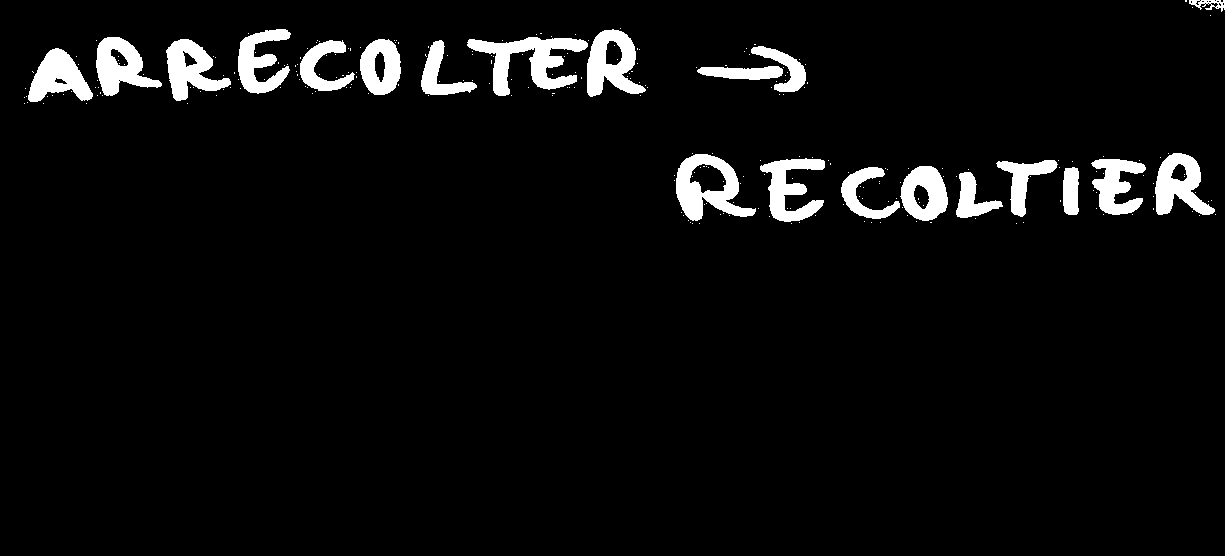 ARRECOLTER →
RECOLTIER